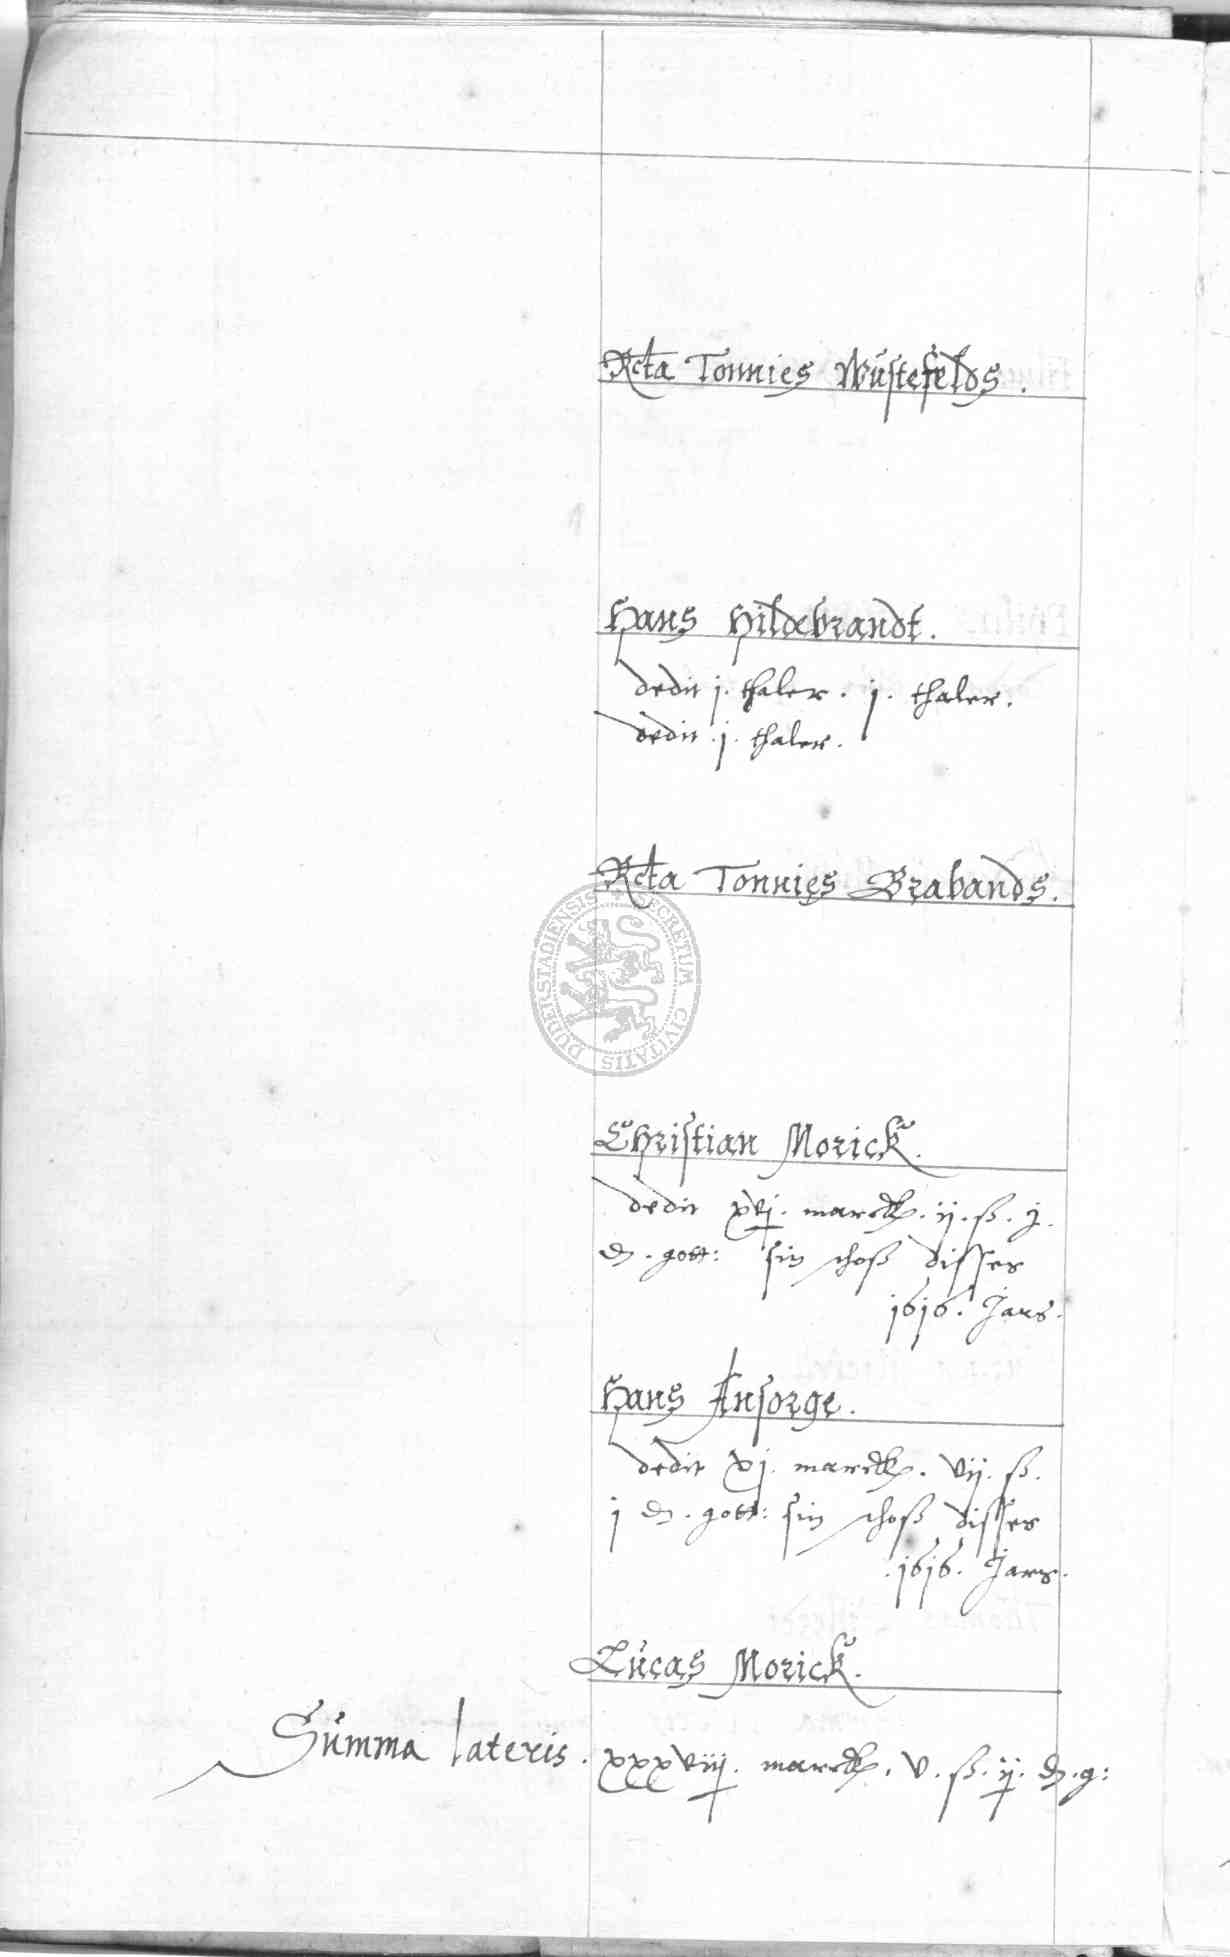 Rcta Tonnies Wüstefelds.
Hans Hildebrandt.
dedit j. thaler. j. thaler.
dedit .j. thaler.
Rcta Tonnies Brabands.
SECRETUM CIVITATIS DUDERSTADIENSIS
Christian Morick.
dedit xvj. marck. ij. ß. j.
d. gott: sin schoß disses
1616. Jars.
Hans Ansorge.
dedit xj. marck. vij. ß.
j d. gott: sin schoß disses
.1616. Jars.
Lücas Morick.
Sümma lateris. xxxviij. marck. v. ß. ij. d. g: